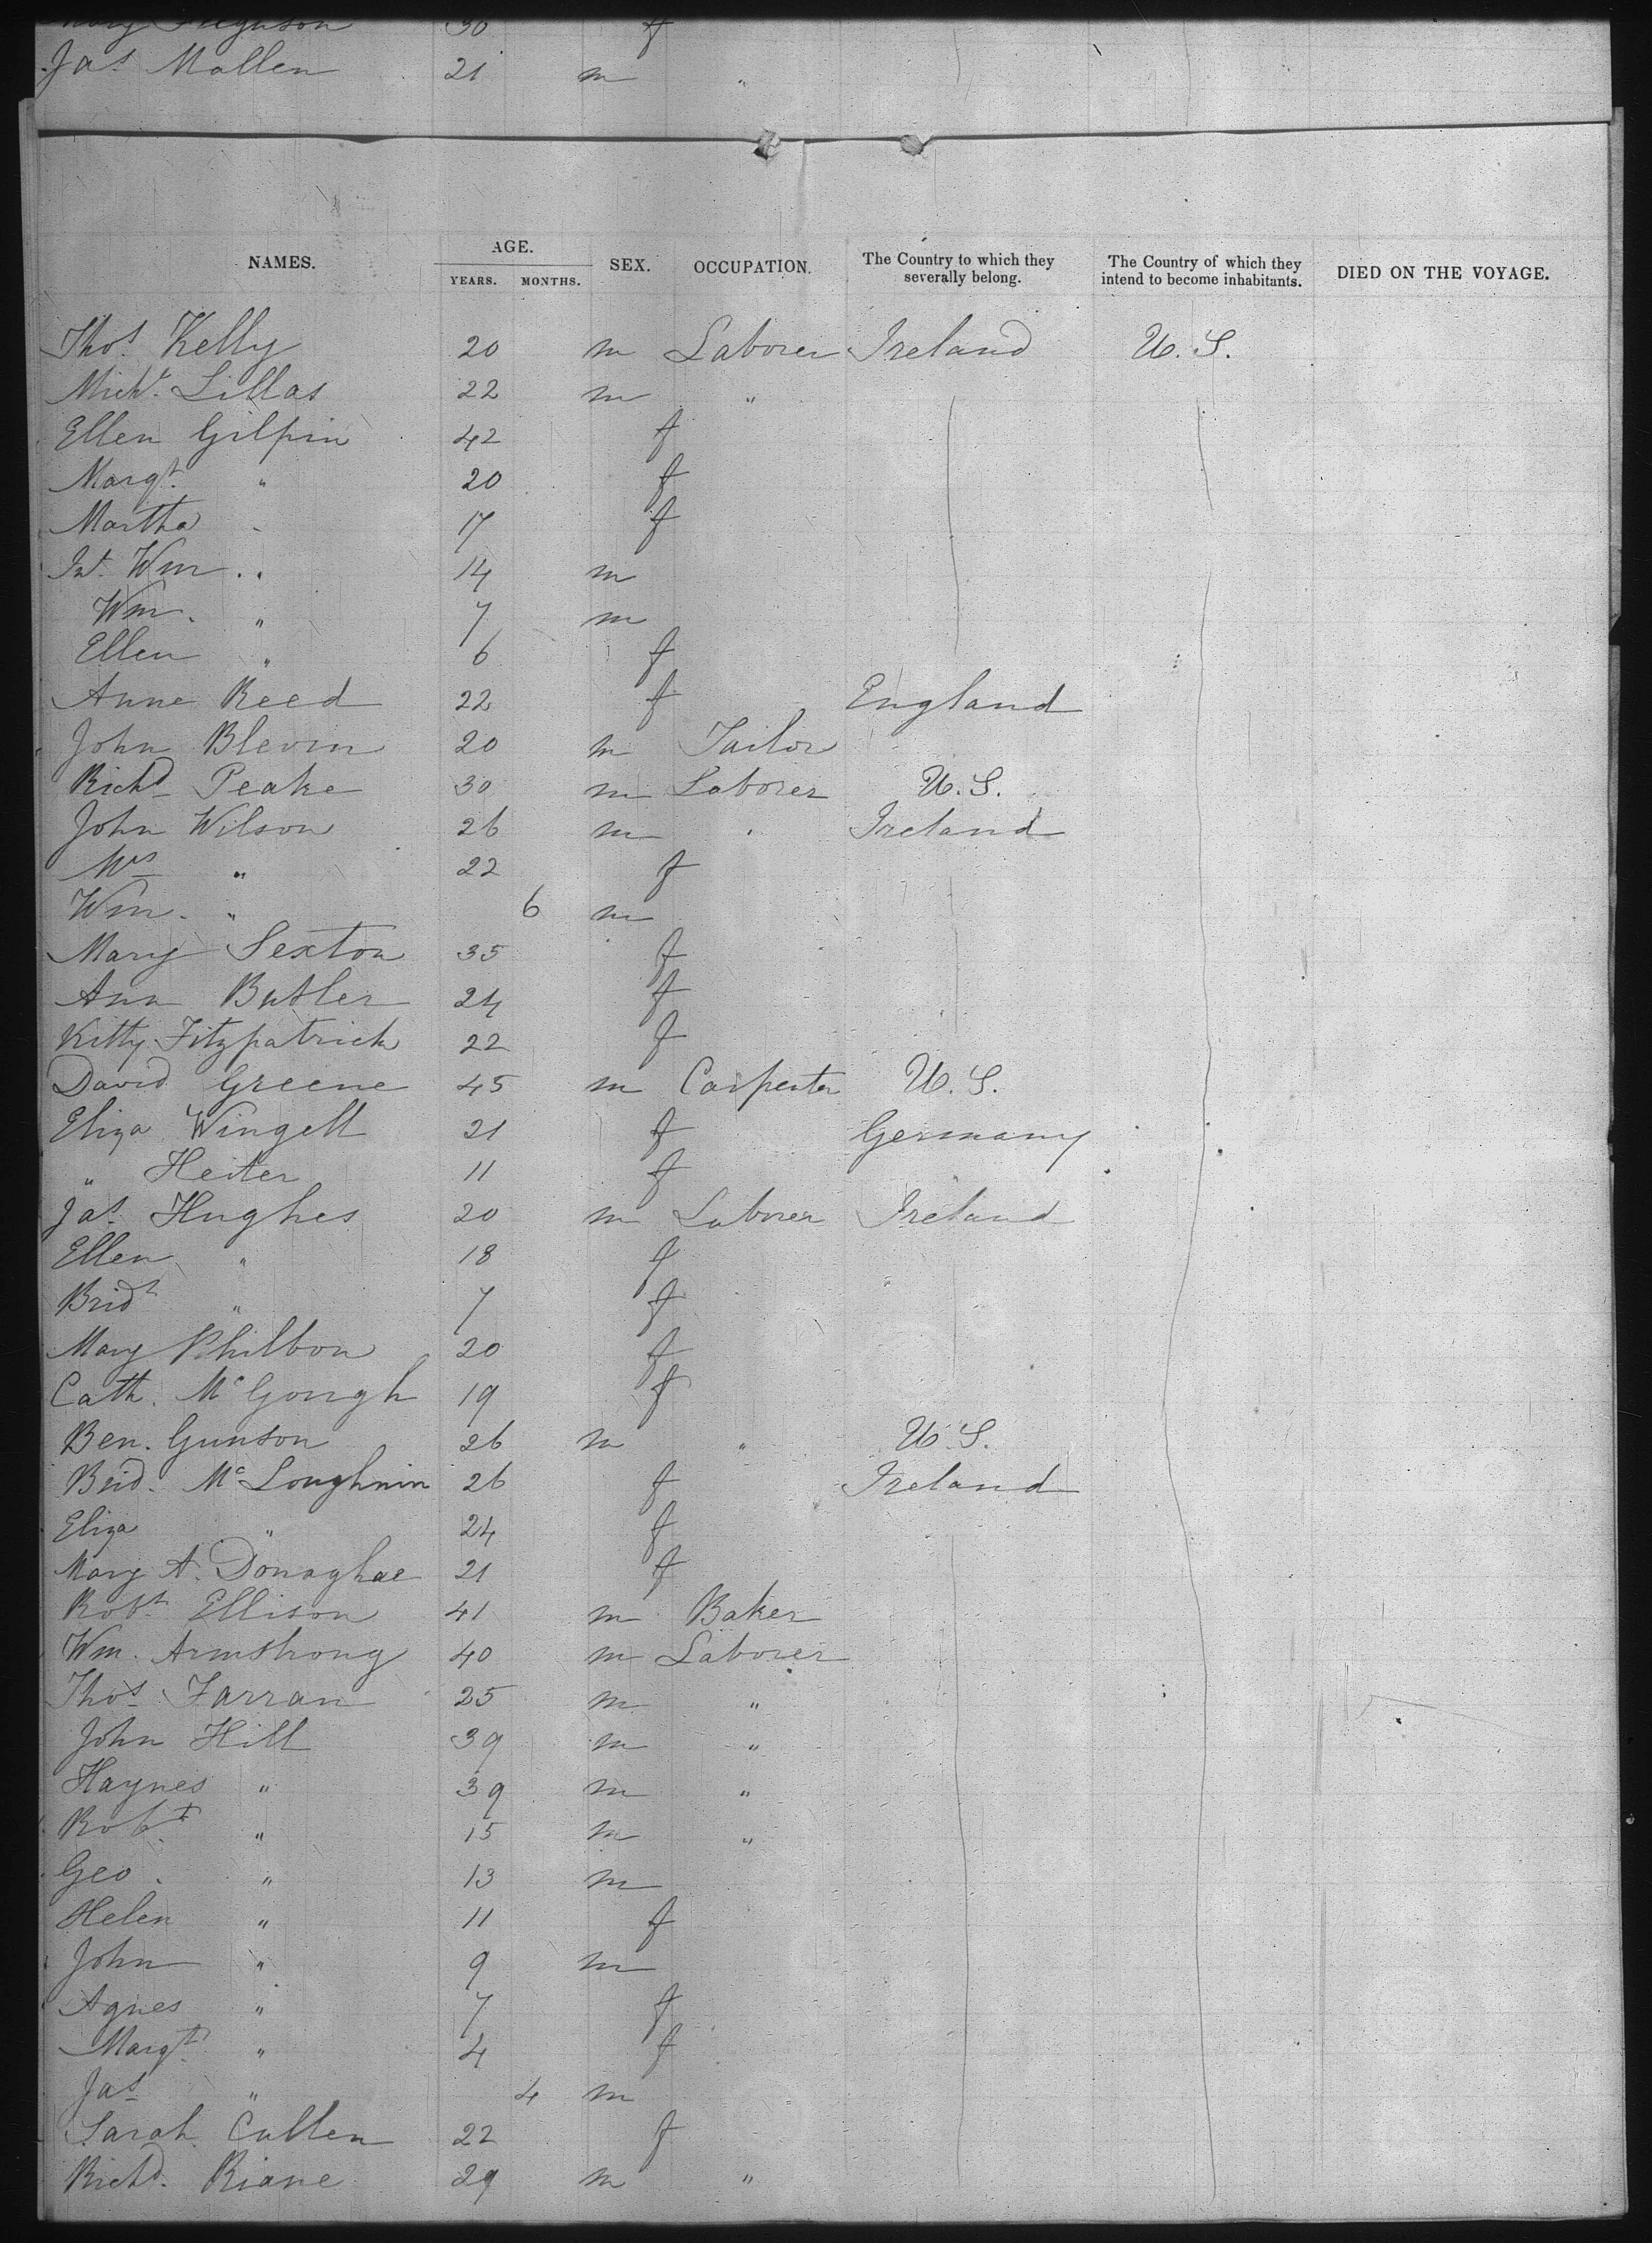 Mary Ferguson 30 f
Jas. Mallen 21 m "
NAMES. AGE. YEARS. MONTHS. SEX. OCCUPATION. The Country to which they severally belong. The Country of which they intend to become inhabitants. DIED ON THE VOYAGE.
Thos. Kelly 20 m Laborer Ireland U.S.
Michl. Lillas 22 m "
Ellen Gilpin 42 f
Margt. " 20 f
Martha " 17 f
Wm " 14 m
Wm. " 7 m
Ellen " 6 f
Anne Reed 22 f England
John Blevin 20 m Tailor
Richd Peake 30 m Laborer U.S.
John Wilson 26 m " Ireland
Mrs " 22 f
Wm. " 6 m
Mary Sexton 35 f
Ann Butler 24 f
Kitty Fitzpatrick 22 f
David Greene 45 m Carpenter U.S.
Eliza Wingell 21 f Germany
" Heiter 11 f
Jas. Hughes 20 m Laborer Ireland
Ellen " 18 f
Bridt " 7 f
Mary Philbon 20 f
Cath. McGough 19 f
Ben. Gunson 26 m " U.S.
Brid. McLoughnin 26 f Ireland
Eliza " 24 f
Mary A. Donaghae 21 f
Robt. Ellison 41 m Baker
Wm. Armstrong 40 m Laborer
Thos. Farran 25 m "
John Hill 39 m "
Haynes " 39 m "
Robt. " 15 m "
Geo. " 13 m
Helen " 11 f
John " 9 m
Agnes " 7 f
Margt. " 4 f
Jas " 4 m
Sarah Cullen 22 f
Richd. Riane 29 m "